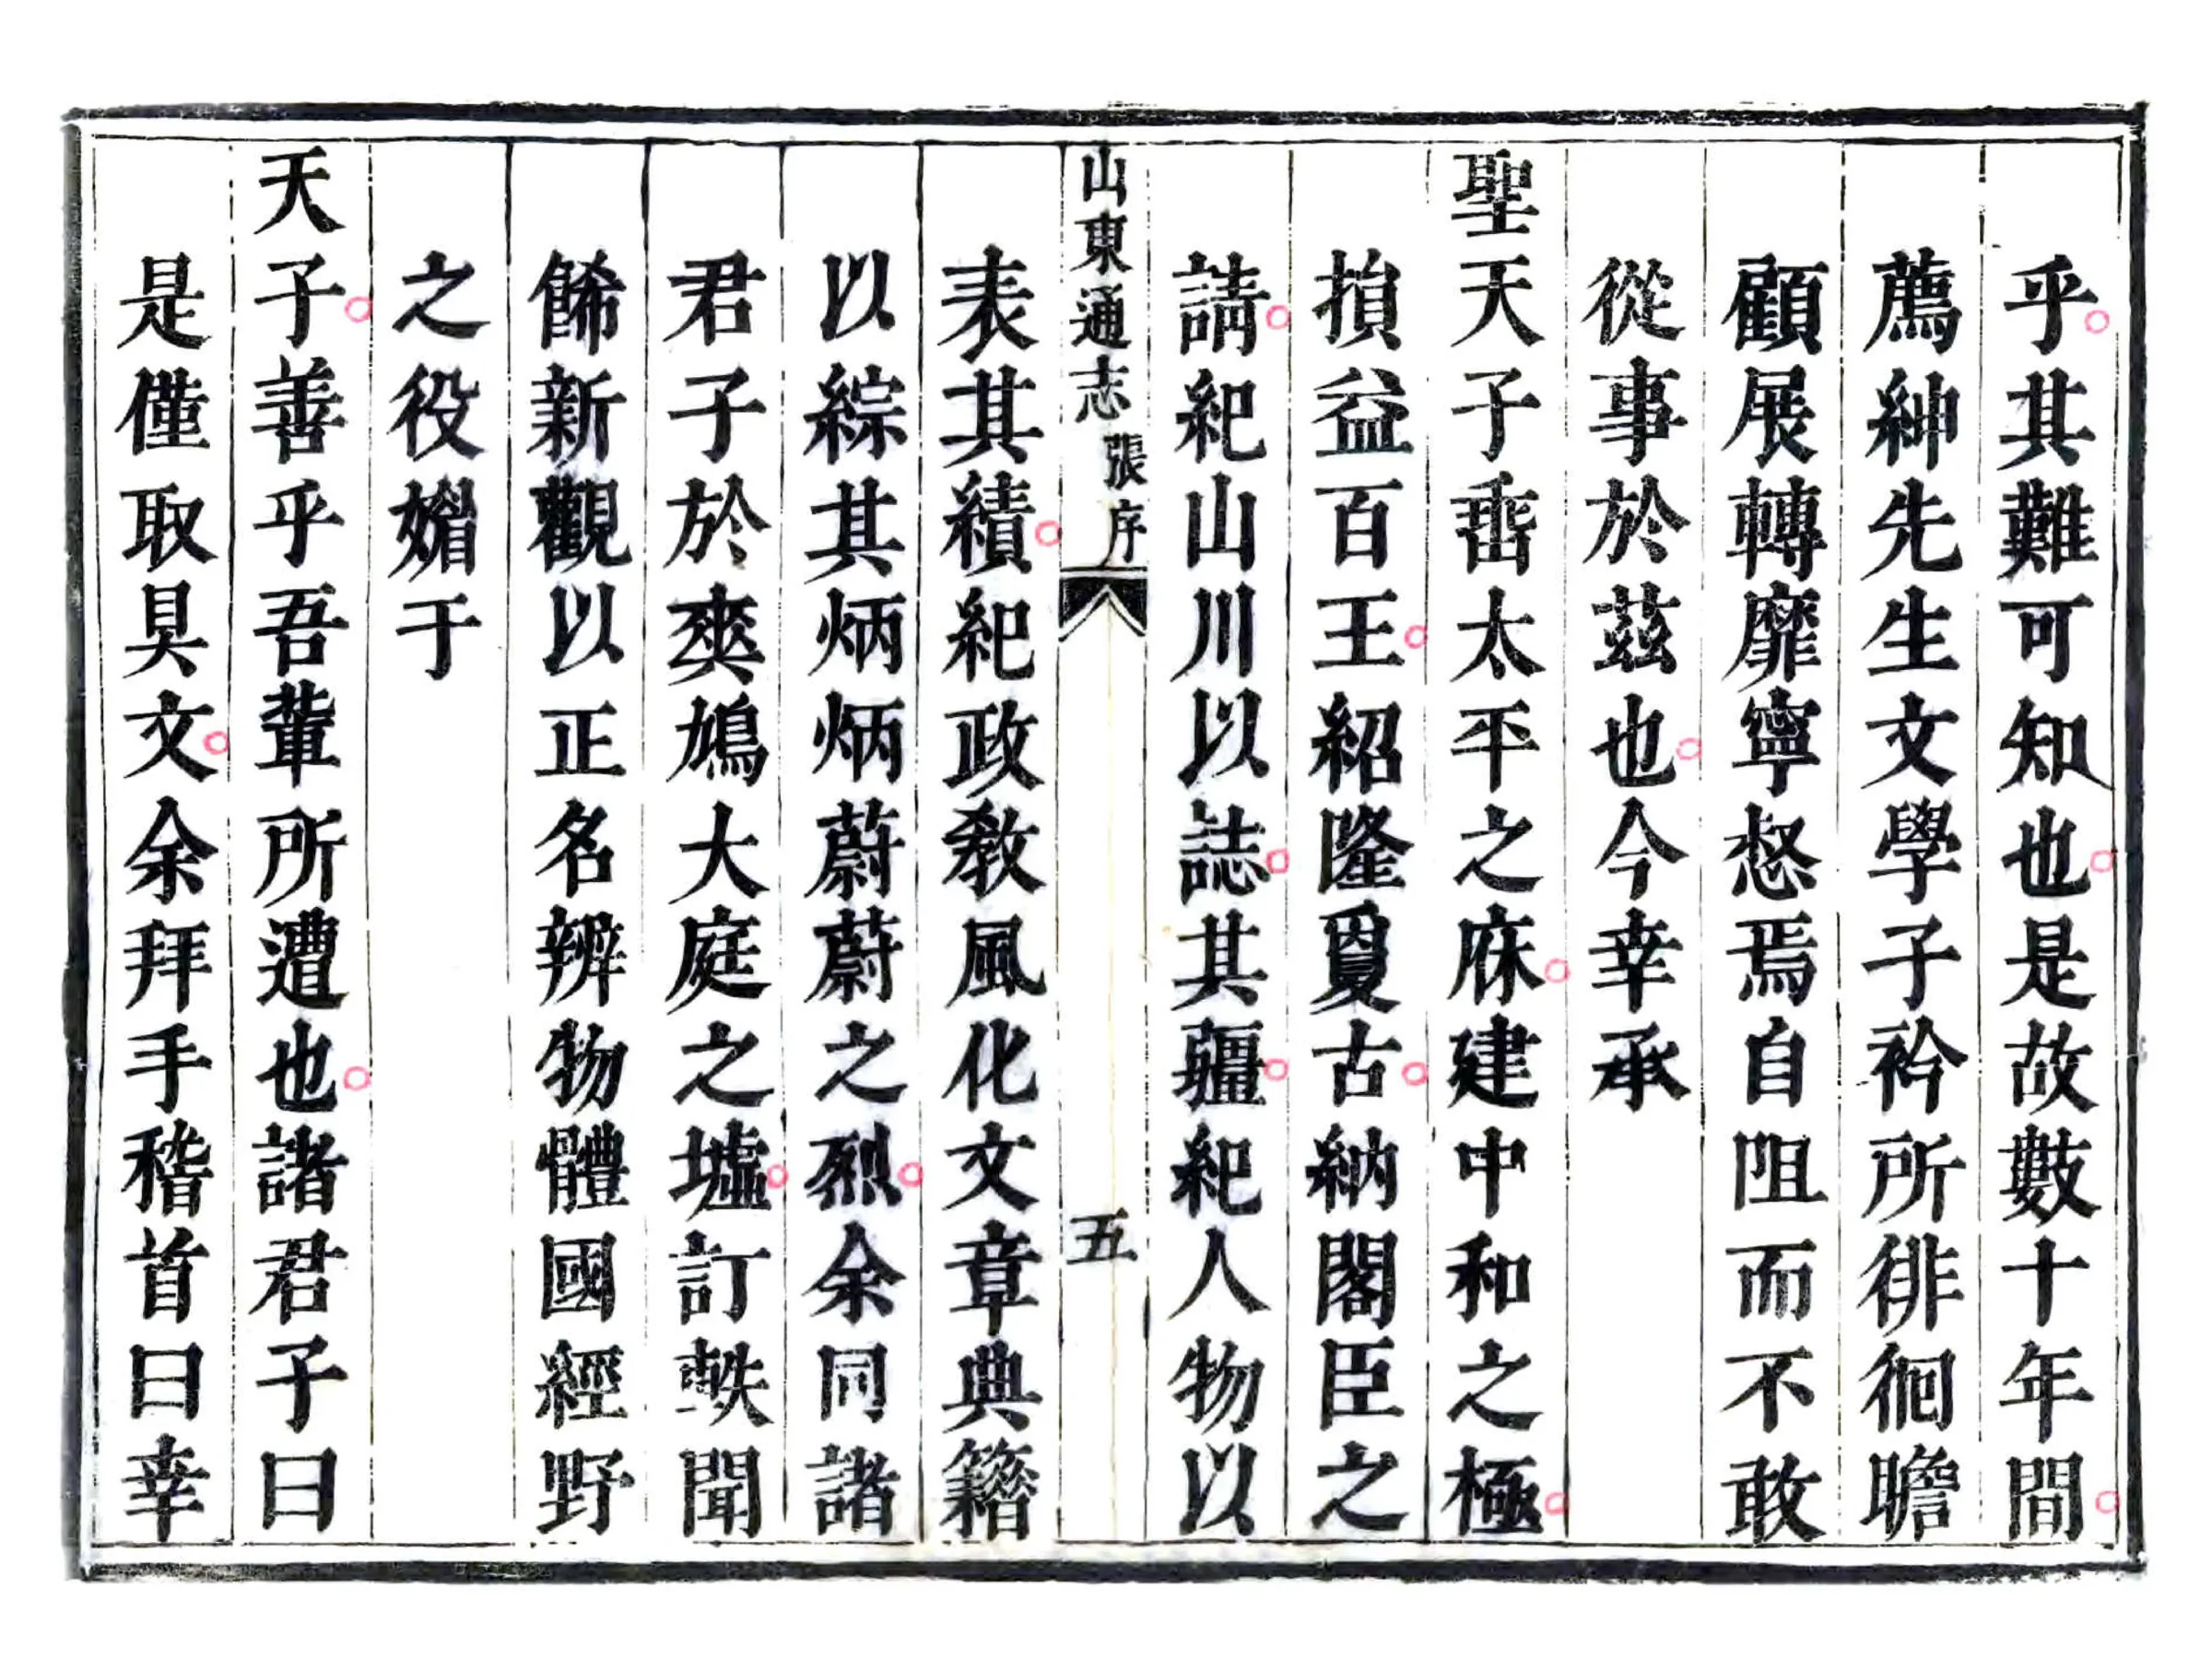 乎其難可知也是故數十年間
薦紳先生文學子衿所徘徊瞻
顧展轉靡寧惄焉自阻而不敢
從事於茲也今幸承
聖天子垂太平之庥建中和之極
損益百王紹隆夐古納閣臣之
請紀山川以誌其疆紀人物以
山東通志 張序 五
表其績紀政敎風化文章典籍
以綜其炳炳蔚蔚之烈余同諸
君子於爽鳩大庭之墟訂軼聞
餙新觀以正名辨物體國經野
之役媚于
天子善乎吾輩所遭也諸君子曰
是僅取具文余拜手稽首曰幸